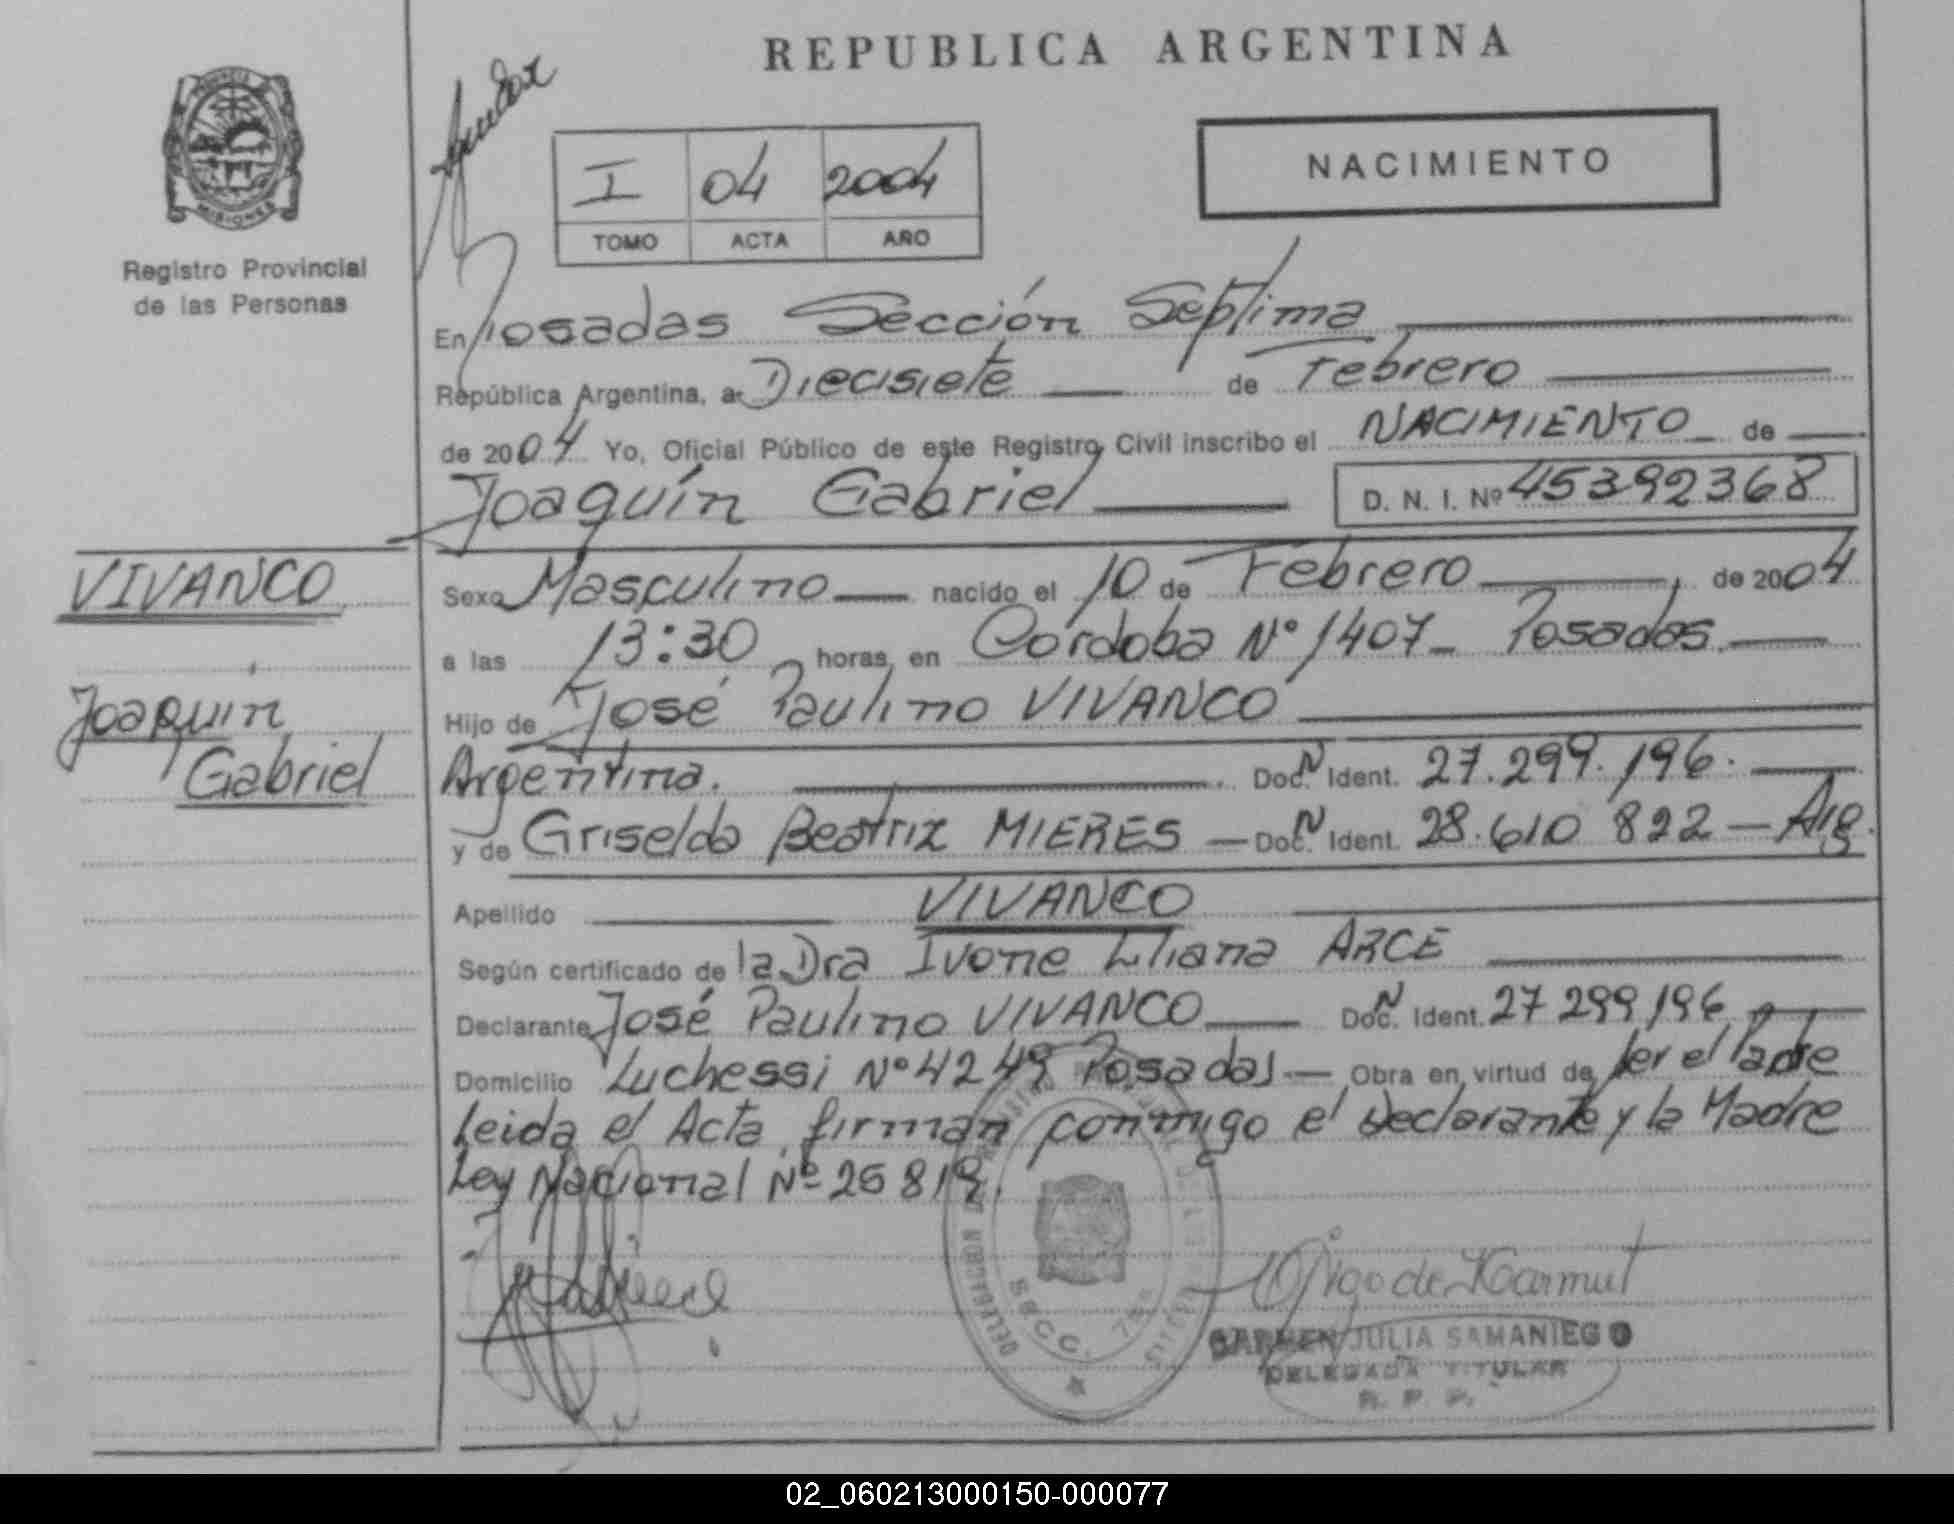 REPUBLICA ARGENTINA
PROVINCIA
MISIONES
Registro Provincial
de las Personas
I 04 2004
TOMO ACTA AÑO
NACIMIENTO
En Posadas Sección Septima
República Argentina, a Diecisiete de Febrero
de 2004 Yo, Oficial Público de este Registro Civil inscribo el NACIMIENTO de
Joaquín Gabriel D. N. I. Nº 45392368
VIVANCO
Joaquín
Gabriel
Sexo Masculino nacido el 10 de Febrero de 2004
a las 13:30 horas, en Córdoba Nº 1407 - Posadas
Hijo de José Paulino VIVANCO
Argentina. Doc. N Ident. 27.299.196.
y de Griselda Beatriz MIERES — Doc. N Ident. 28.610 822 — Arg.
Apellido VIVANCO
Según certificado de la Dra Ivone Liliana ARCE
Declarante José Paulino VIVANCO Doc. N Ident. 27 299 196
Domicilio Luchessi Nº 4249 Posadas — Obra en virtud de ser el Padre
Leida el Acta, firman conmigo el Declarante y la Madre
Ley Nacional Nº 25819.
SECC. 7ma
CARMEN JULIA SAMANIEGO
DELEGADA TITULAR
R. P. P.
02_060213000150-000077